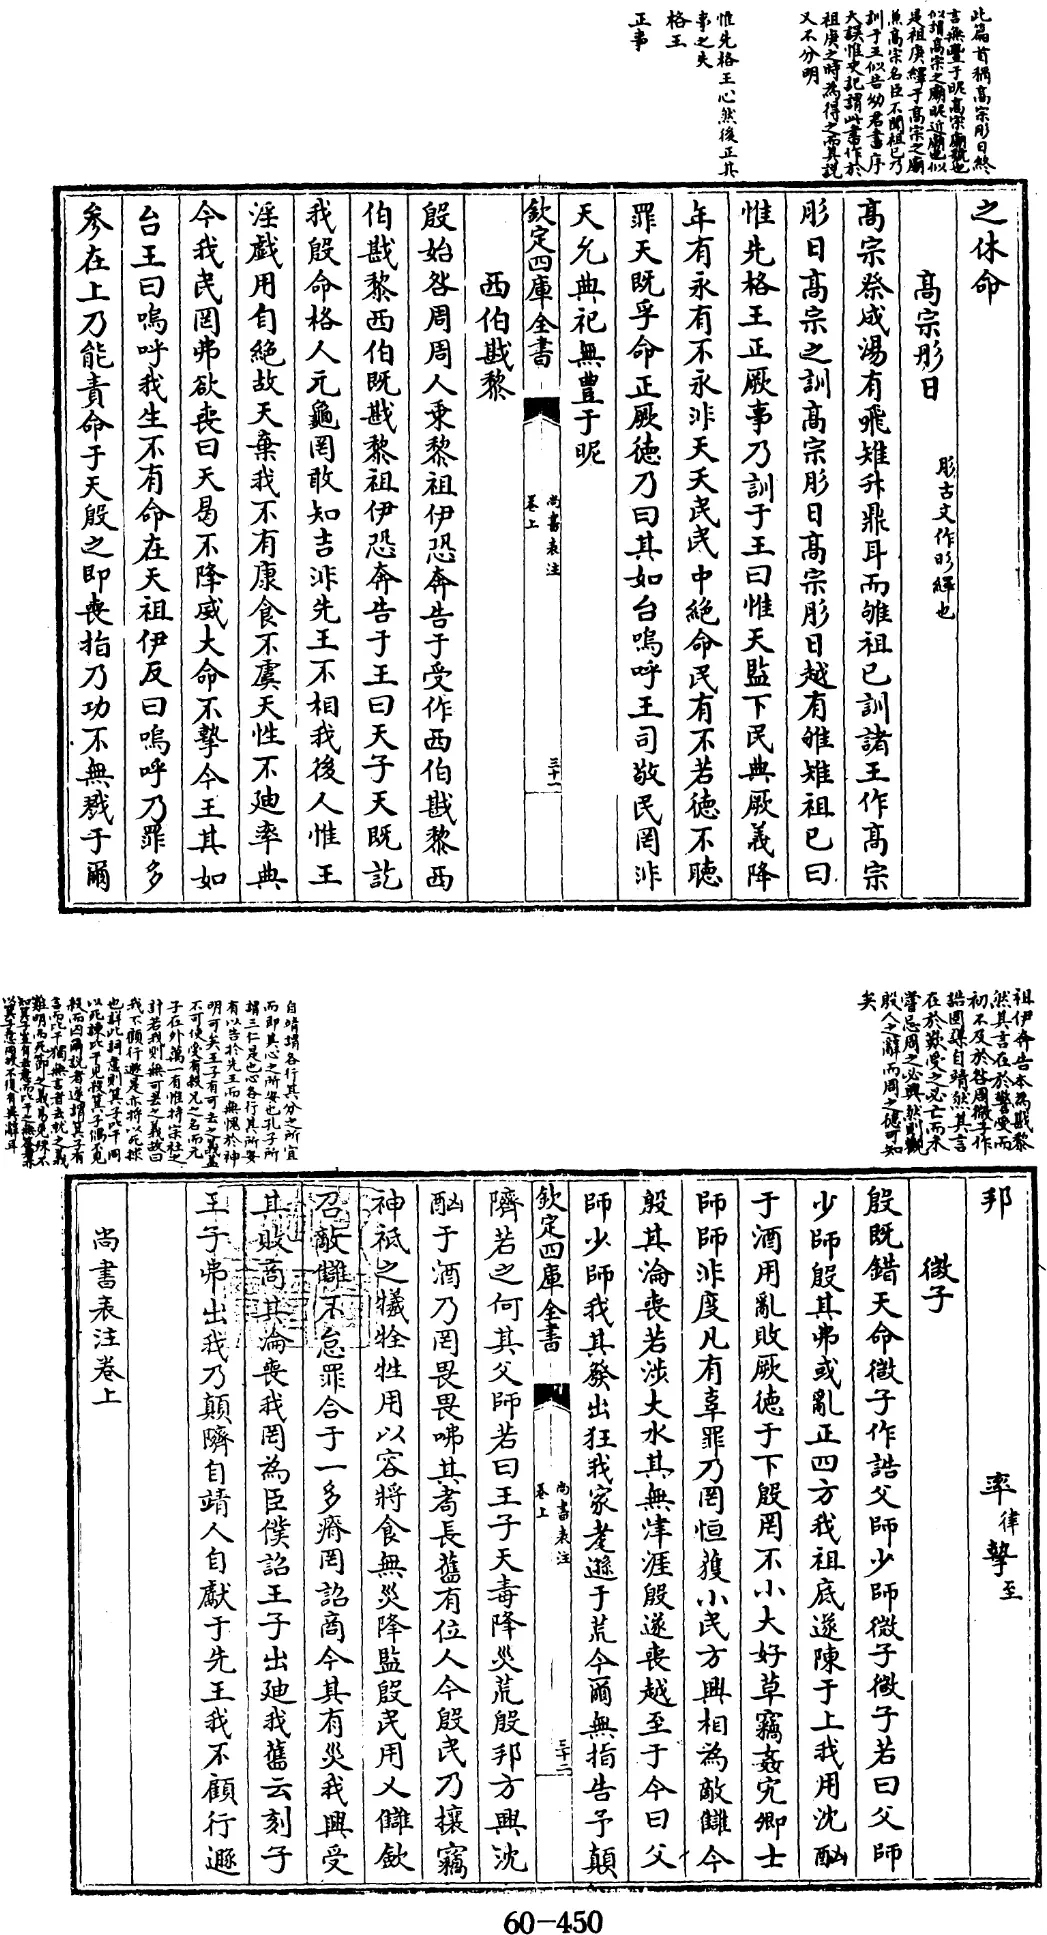 此篇首稱高宗肜日終
言無豐于昵高宗廟號也
似謂高宗之廟昵近廟也似
是祖庚繹于高宗之廟
兼高宗名臣不聞祖己乃
訓于王似告幼君書序
大誤惟史記謂此書作於
祖庚之時為得之而其説
又不分明
惟先格王心然後正其
事之失
格王
正事
之休命
高宗肜日
肜古文作肜繹也
高宗祭成湯有飛雉升鼎耳而雊祖己訓諸王作高宗
肜日高宗之訓高宗肜日高宗肜日越有雊雉祖己曰
惟先格王正厥事乃訓于王曰惟天監下民典厥義降
年有永有不永非天夭民民中絶命民有不若德不聽
罪天既孚命正厥德乃曰其如台嗚呼王司敬民罔非
天允典祀無豊于昵
欽定四庫全書
尚書表注
卷上
三十一
西伯戡黎
殷始咎周周人乘黎祖伊恐奔告于受作西伯戡黎西
伯戡黎西伯既戡黎祖伊恐奔告于王曰天子天既訖
我殷命格人元龜罔敢知吉非先王不相我後人惟王
淫戲用自絶故天棄我不有康食不虞天性不迪率典
今我民罔弗欲喪曰天曷不降威大命不摯今王其如
台王曰嗚呼我生不有命在天祖伊反曰嗚呼乃罪多
參在上乃能責命于天殷之即喪指乃功不無戮于爾
祖伊奔告本為戡黎
然其言在於警受而
初不及於咎周微子作
誥固謀自靖然其言
在於歎受之必亡而未
嘗忌周之必興然則觀
殷人之辭而周之德可知
矣
邦
率律摯至
微子
殷既錯天命微子作誥父師少師微子微子若曰父師
少師殷其弗或亂正四方我祖底遂陳于上我用沈酗
于酒用亂敗厥德于下殷罔不小大好草竊姦宄卿士
師師非度凡有辜罪乃罔恒獲小民方興相為敵讎今
殷其淪喪若涉大水其無津涯殷遂喪越至于今曰父
師少師我其發出狂我家耄遜于荒今爾無指告予顛
欽定四庫全書
尚書表注
卷上
三十二
隮若之何其父師若曰王子天毒降災荒殷邦方興沈
酗于酒乃罔畏畏咈其耇長舊有位人今殷民乃攘竊
神祗之犧牷牲用以容將食無災降監殷民用乂讎斂
召敵讎不怠罪合于一多瘠罔詔商今其有災我興受
其敗商其淪喪我罔為臣僕詔王子出迪我舊云刻子
王子弗出我乃顛隮自靖人自獻于先王我不顧行遯
尚書表注卷上
自靖謂各行其分之所宜
而即其心之所安也孔子所
謂三仁是也心各行其所安
有以告於先王而無愧於神
明可矣王子有可去之義蓋
不可使受有殺兄之名而元
子在外萬一有維持宗社之
計若我則無可去之義故曰
我不顧行遯是亦將以死諫
也詳此詞意則箕子比干同
以死諫比干見殺箕子偶不見
殺而囚爾説者遂謂箕子有
言而比干獨無言者去就之義
難明而死節之義易見殊不
60-450